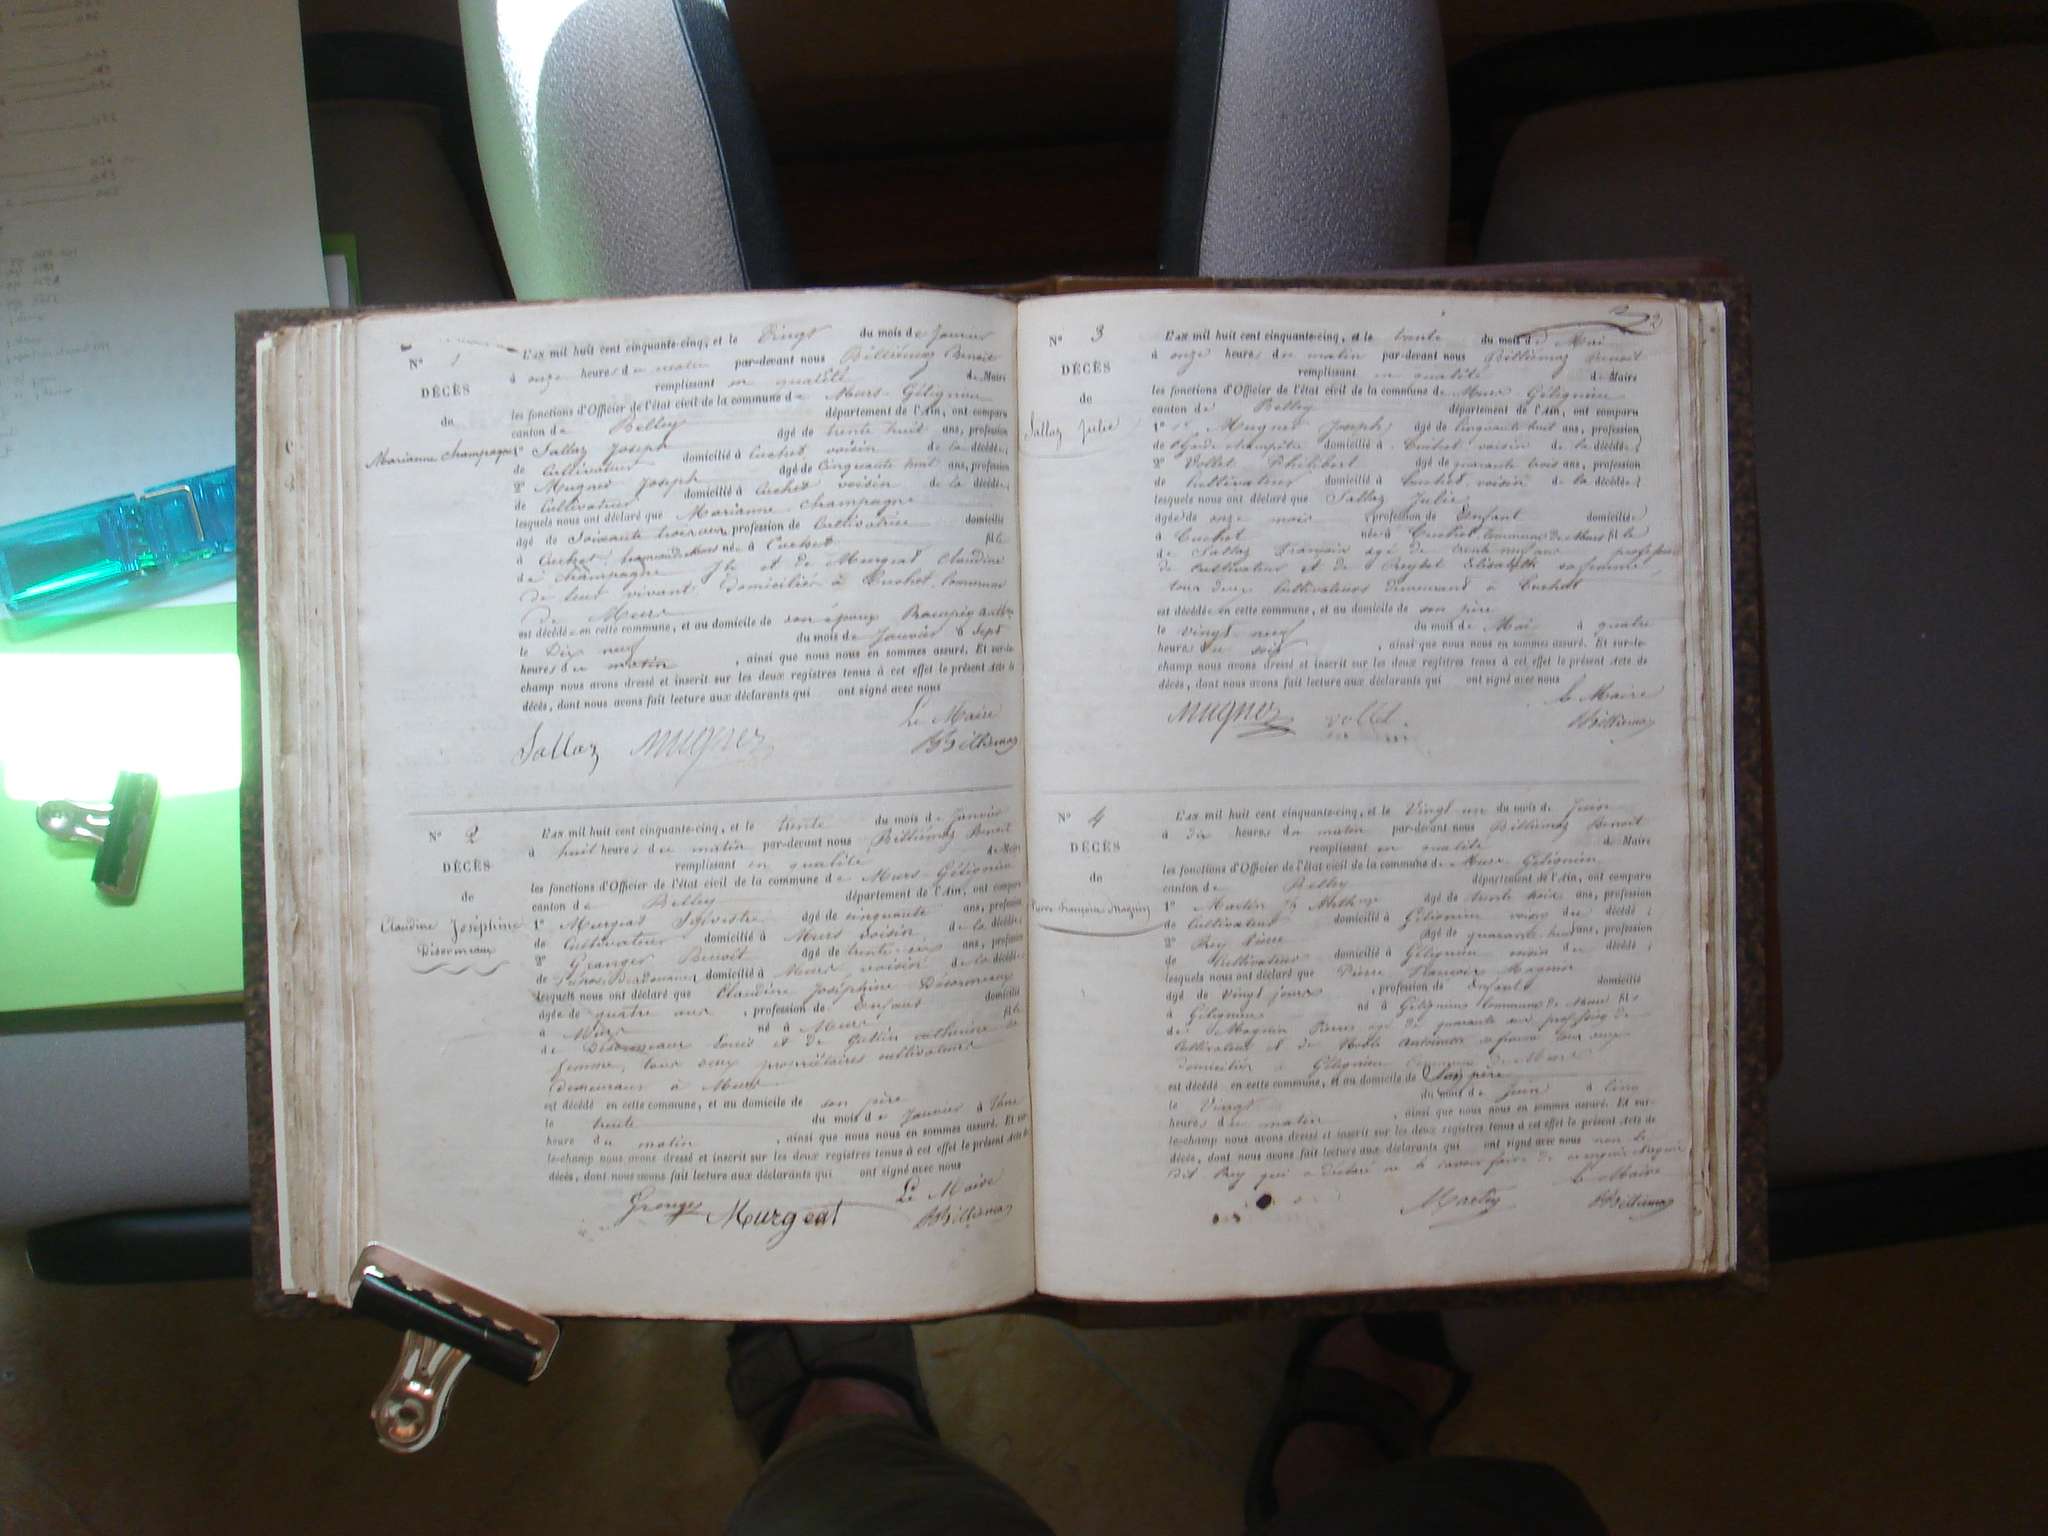 N° 1
DÉCÈS
du
Marianne Champagne
L'AN mil huit cent cinquante-cinq, et le Vingt du mois de Janvier
à onze heures du matin par-devant nous Billiémaz Benoit
remplissant en qualité de Maire
les fonctions d'Officier de l'état civil de la commune de Murs-Gélignieu
canton de Belley département de l'Ain, ont comparu
1° Sallaz Joseph âgé de trente huit ans, profession
de Cultivateur domicilié à Cuchet voisin de la décédée;
2° Mugner Joseph âgé de Cinquante huit ans, profession
de Cultivateur domicilié à Cuchet voisin de la décédée;
lesquels nous ont déclaré que Marianne Champagne
âgé de Soixante trois ans profession de Cultivatrice domicilié
à Cuchet née à Cuchet fille
de Champagne et de Murgeat Claudine
de leur vivant domiciliés à Cuchet Commune
de Murs
est décédée en cette commune, et au domicile de son époux
le Dix neuf du mois de Janvier à Sept
heures du matin, ainsi que nous nous en sommes assuré. Et sur-le-
champ nous avons dressé et inscrit sur les deux registres tenus à cet effet le présent Acte de
décès, dont nous avons fait lecture aux déclarants qui ont signé avec nous
Le Maire
Sallaz Mugner Billiémaz
N° 2
DÉCÈS
de
Claudine Joséphine
Désormeaux
L'AN mil huit cent cinquante-cinq, et le trente du mois de Janvier
à huit heures du matin par-devant nous Billiémaz Benoit
remplissant en qualité de Maire
les fonctions d'Officier de l'état civil de la commune de Murs-Gélignieu
canton de Belley département de l'Ain, ont comparu
1° Murgeat Sylvestre âgé de cinquante ans, profession
de Cultivateur domicilié à Murs voisin de la décédée;
2° Granger Benoit âgé de trente-six ans, profession
de domicilié à Murs voisin de la décédée
lesquels nous ont déclaré que Claudine Joséphine Désormeaux
âgée de quatre ans, profession de Enfant domicilié
à Murs né à Murs fille
de Désormeaux Louis et de Catherine sa
femme, tous deux propriétaires cultivateurs
demeurant à Murs
est décédé en cette commune, et au domicile de son père
le trente du mois de Janvier à Une
heure du matin, ainsi que nous nous en sommes assuré. Et sur-
le-champ nous avons dressé et inscrit sur les deux registres tenus à cet effet le présent Acte de
décès, dont nous avons fait lecture aux déclarants qui ont signé avec nous
Le Maire
Granger Murgeat Billiémaz
N° 3
DÉCÈS
de
Sallaz Julie
L'AN mil huit cent cinquante-cinq, et le trente du mois de Mai
à onze heures du matin par-devant nous Billiémaz Benoit
remplissant en qualité de Maire
les fonctions d'Officier de l'état civil de la commune de Murs Gélignieu
canton de Belley département de l'Ain, ont comparu
1° Mugner Joseph âgé de Cinquante huit ans, profession
de Garde champêtre domicilié à Cuchet voisin de la décédée;
2° Vollet Philibert âgé de quarante trois ans, profession
de Cultivateur domicilié à Cuchet voisin de la décédée;
lesquels nous ont déclaré que Sallaz Julie
âgée de onze mois, profession de Enfant domiciliée
à Cuchet née à Cuchet commune de Murs fille
de Sallaz François âgé de trente neuf ans profession
de Cultivateur et de Peysset Elisabeth sa femme,
tous deux Cultivateurs demeurant à Cuchet
est décédée en cette commune, et au domicile de son père
le vingt neuf du mois de Mai à quatre
heures du soir, ainsi que nous nous en sommes assuré. Et sur-le-
champ nous avons dressé et inscrit sur les deux registres tenus à cet effet le présent Acte de
décès, dont nous avons fait lecture aux déclarants qui ont signé avec nous
le Maire
Mugner vollet Billiémaz
N° 4
DÉCÈS
de
Pierre François Magnin
L'AN mil huit cent cinquante-cinq, et le Vingt un du mois de Juin
à dix heures du matin par-devant nous Billiémaz Benoit
remplissant en qualité de Maire
les fonctions d'Officier de l'état civil de la commune de Murs Gélignieu
canton de Belley département de l'Ain, ont comparu
1° Martin âgé de trente huit ans, profession
de Cultivateur domicilié à Gélignieu voisin du décédé;
2° Rey Pierre âgé de quarante huit ans, profession
de Cultivateur domicilié à Gélignieu voisin du décédé;
lesquels nous ont déclaré que Pierre François Magnin
âgé de vingt jours, profession de Enfant domicilié
à Gélignieu né à Gélignieu Commune de Murs fils
de Magnin Pierre âgé de quarante ans profession de
Cultivateur et de Antoinette sa femme tous deux
domiciliés à Gélignieu Commune de Murs
est décédé en cette commune, et au domicile de son père
le Vingt du mois de Juin à Cinq
heures du matin, ainsi que nous nous en sommes assuré. Et sur-
le-champ nous avons dressé et inscrit sur les deux registres tenus à cet effet le présent Acte de
décès, dont nous avons fait lecture aux déclarants qui ont signé avec nous non le
dit Rey qui a déclaré ne le savoir faire de ce requis
le Maire
Martin Billiémaz